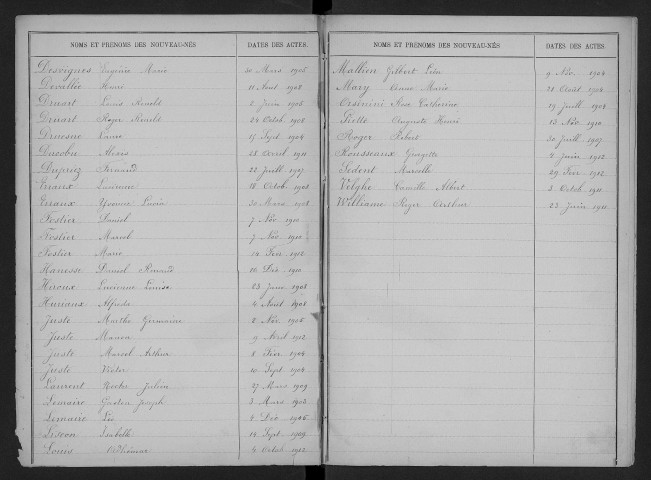 NOMS ET PRÉNOMS DES NOUVEAU-NÉS DATES DES ACTES.
Desvignes Eugénie Marie 30 Mars 1905
Devallée Henri 11 Août 1908
Druart Louis 2 Juin
Druart Roger 24 Octob. 1908
Ducesne 15 Sept. 1904
Ducobu Alexis 18 Avril 1911
Dupuz Fernand 22 Juill. 1907
Evaux Lucienne 18 Octob. 1908
Evaux Yvonne 30 Mars 1908
Fostier Daniel 7 Nov. 1910
Fostier Marcel 7 Nov. 1910
Fostier Marie 14 Fév. 1912
Hanesse Daniel 16 Déc. 1910
Hiroux Louise 23 Janv. 1908
Huriaux Alfreda 4 Août 1908
Juste Marthe Germaine 2 Nov. 1905
Juste 9 Avril 1912
Juste Marcel Arthur 8 Fév. 1904
Juste Victor 10 Sept. 1904
Laurent Julien 27 Mars 1909
Lemaire Gaston Joseph 3 Mars 1903
Lemaire Léa 4 Déc. 1906
Liscon Isabelle 14 Sept. 1909
Louis 6 Octob. 1912
NOMS ET PRÉNOMS DES NOUVEAU-NÉS DATES DES ACTES.
Mallien Gilbert Léon 9 Nov. 1904
Mary Marie 21 Août 1908
Orsinini Catherine 19 Juill. 1904
Piette Auguste Henri 13 Nov. 1910
Roger Robert 30 Juill. 1907
Rousseaux Georgette 7 Juin 1912
Sedent Marcelle 29 Fév. 1912
Velghe Camille Albert 3 Octob. 1911
Williame Roger Arthur 23 Juin 1911